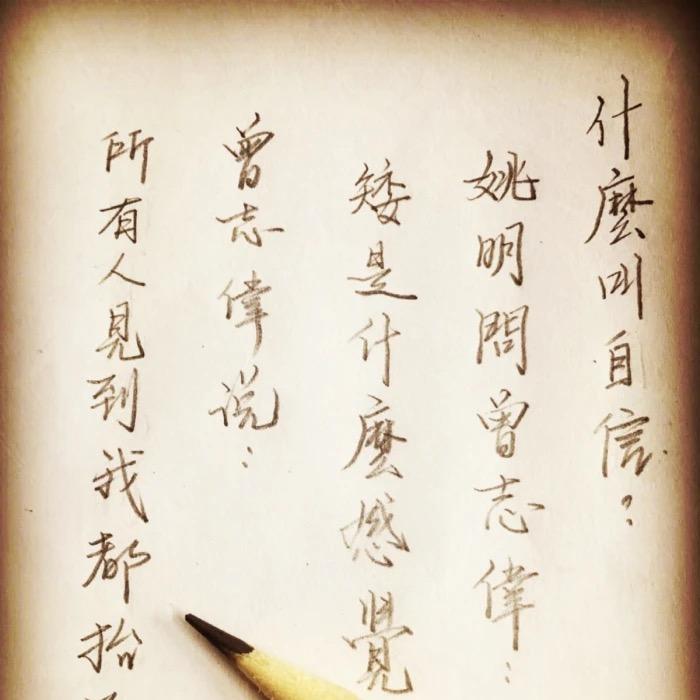 什麼叫自信？
姚明問曾志偉：
矮是什麼感覺
曾志偉说：
所有人見到我都抬